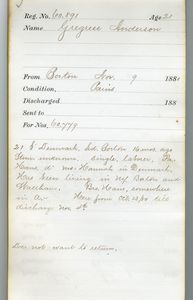 Reg. No. 60,891 Age 21
Name Gregree Anderson
From Boston Nov. 9 188
Condition, Pains
Discharged 188
Sent to
For Nos. 60,779
21 b Denmark, Ld. Boston 16 mos. ago
Str. unknown. Single, laborer, Fa.
Hans, d' mo. Hannah in Denmark,
Has been living in NY Boston and
Waltham. Bro. Hans, somewhere
in Here from Oct. 13/80 till
discharge Nov. 5th
Does not want to return.